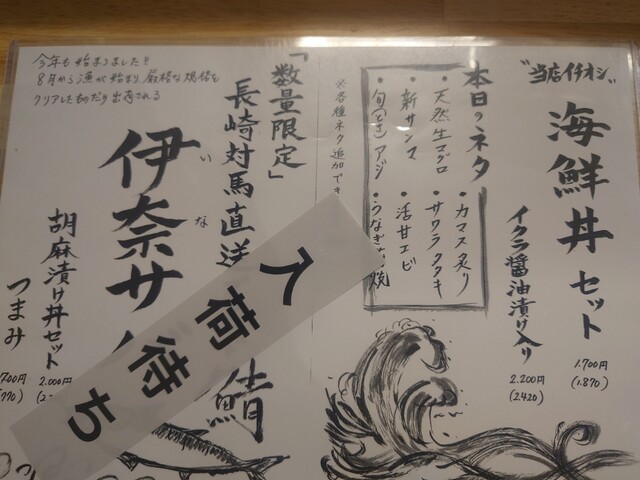 "当店イチオシ"
海鮮丼セット
1.700円
(1.870)
イクラ醤油漬け入り
2.200円
(2.420)
本日のネタ
・天然生マグロ
・カマス炙り
・新サンマ
・サワラタタキ
・旬 アジ
・活甘エビ
・うなぎ 焼
※各種ネタ追加でき
「数量限定」
長崎対馬直送
伊奈サバ
いな
鯖
胡麻漬け丼セット
2.000円
つまみ
700円
770)
今年も始まりました!!
8月から漁が始まり、厳格な規格を
クリアしたものだけ出荷される
入荷待ち